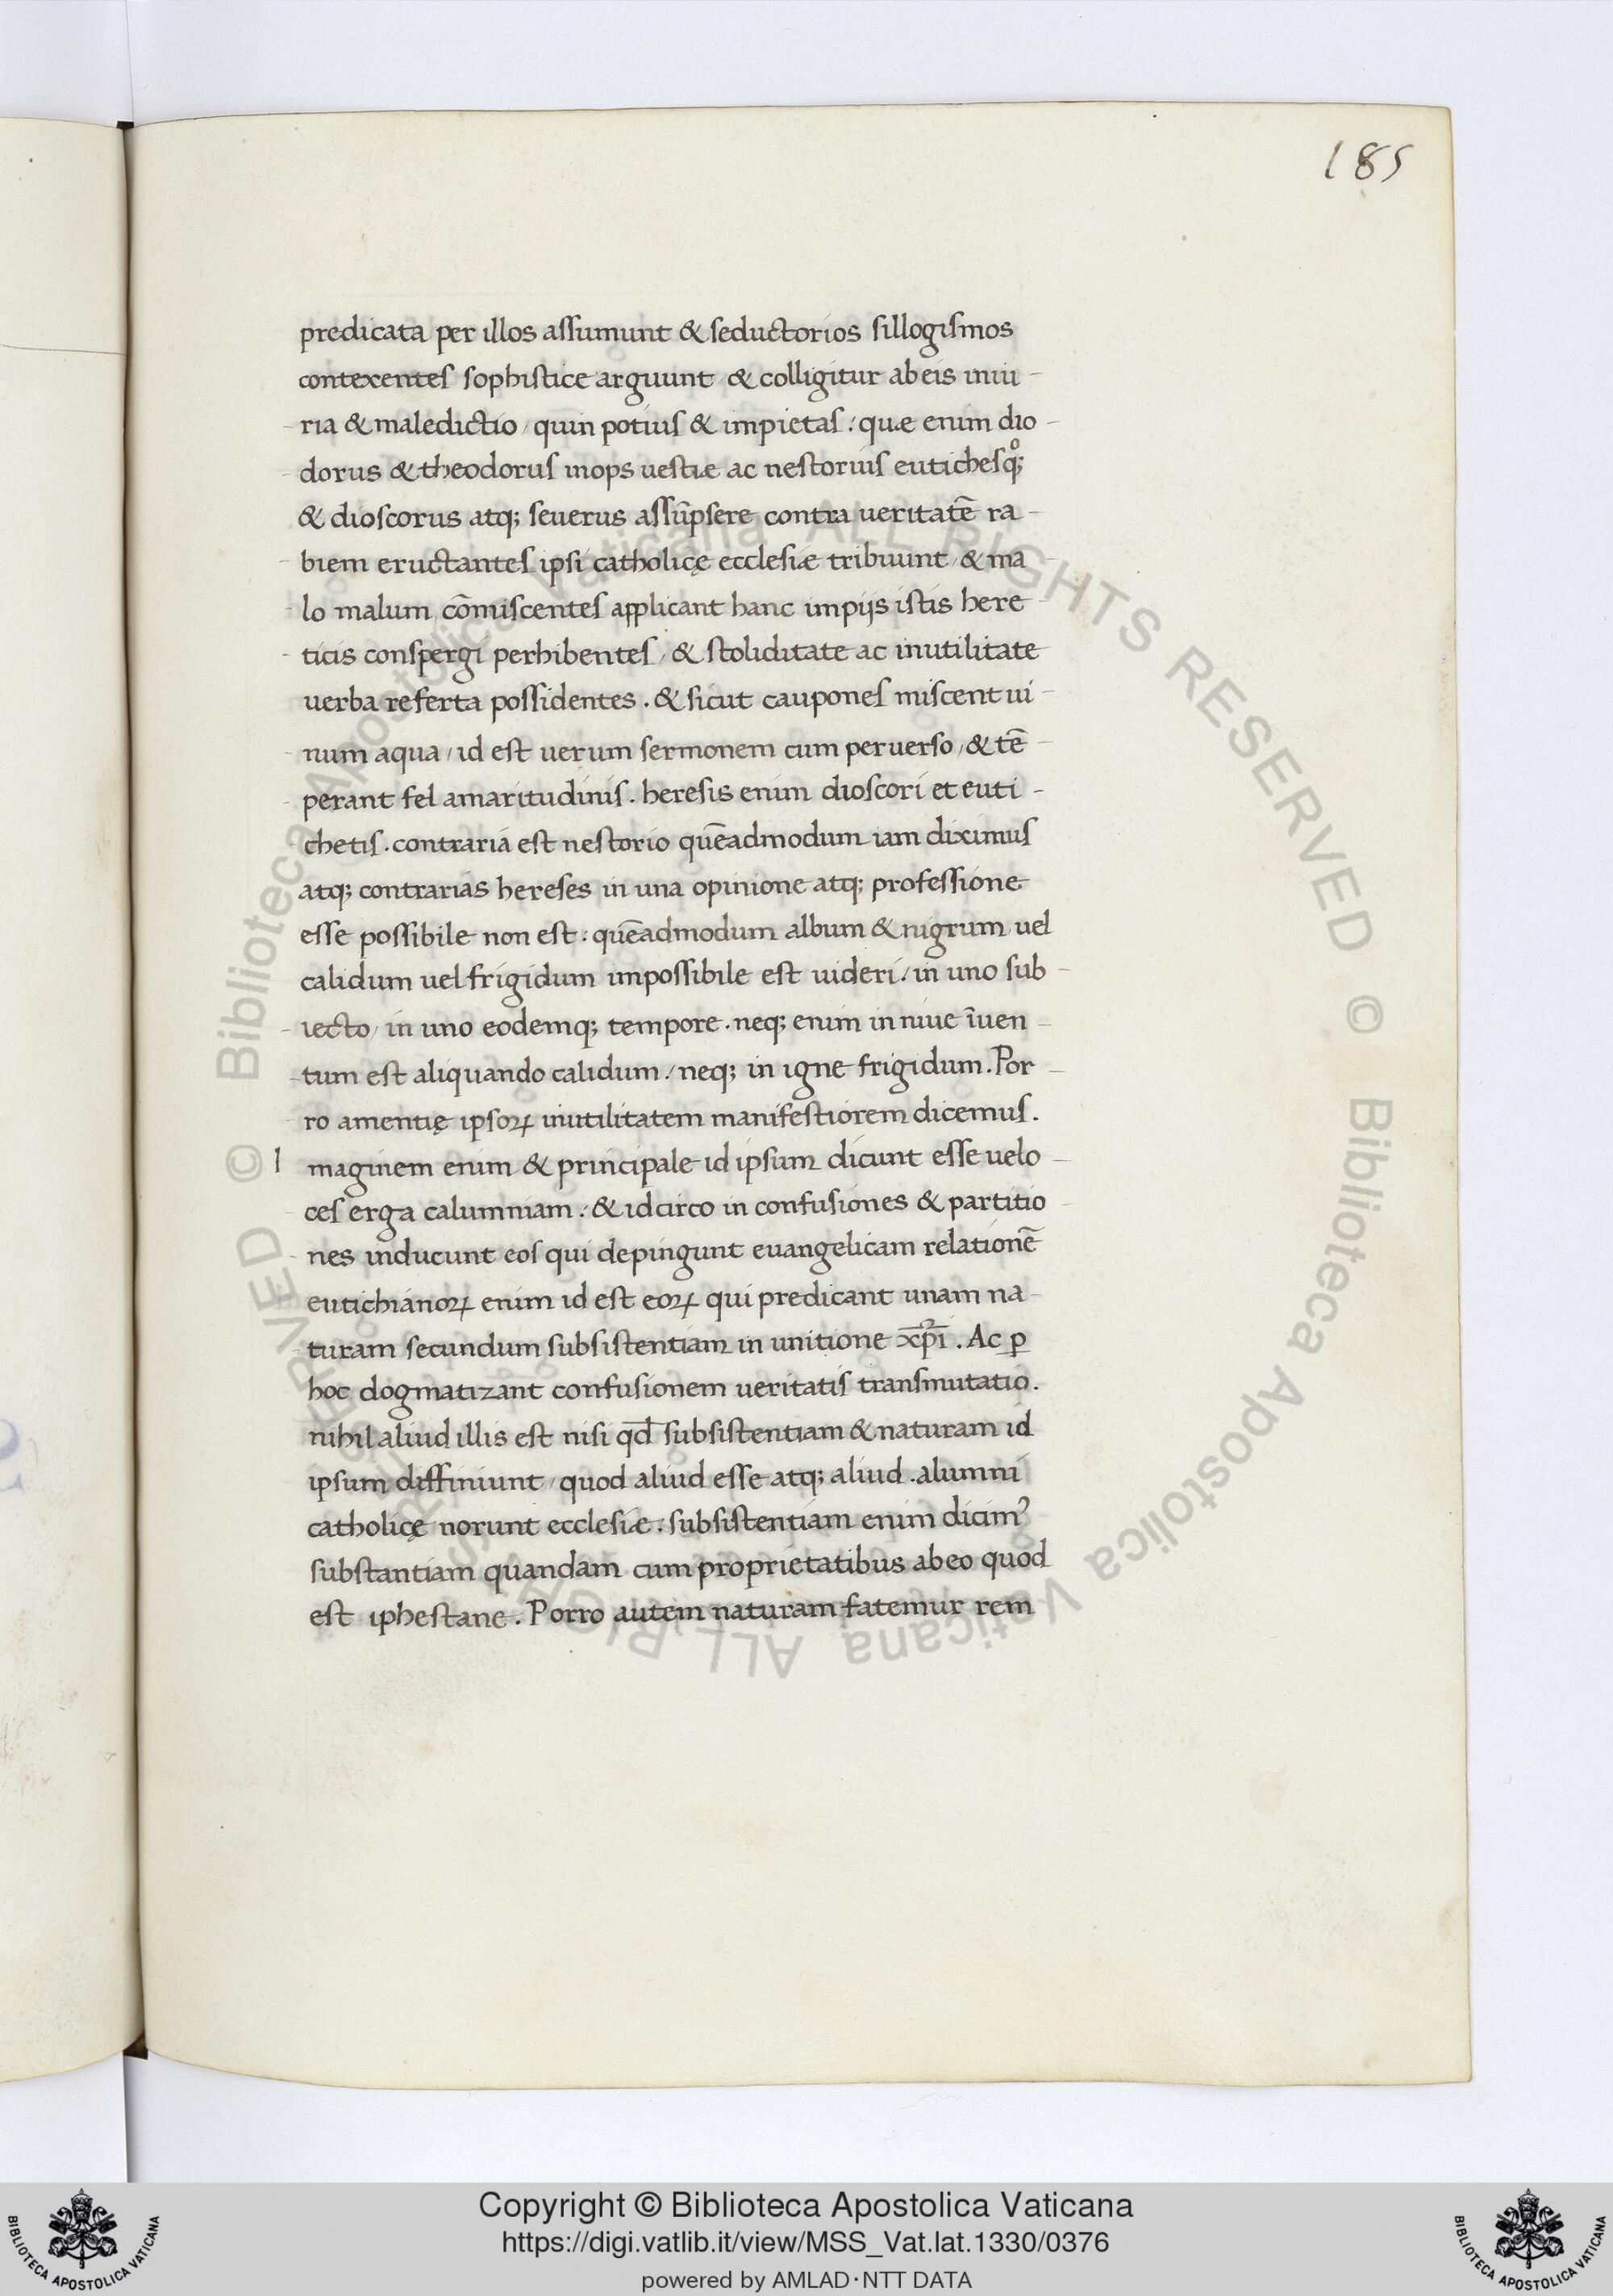 185
predicata per illos assumunt & seductorios sillogismos
contexentes sophistice arguunt / & colligitur ab eis iniu-
ria & maledictio / quin potius & impietas : quæ enim dio-
dorus & theodorus mops uestiæ ac nestorius eutichesq;
& dioscorus atq; seuerus assūpsere contra ueritatē ra-
biem eructantes ipsi catholicę ecclesiæ tribuunt / & ma
lo malum cōmiscentes applicant hanc impijs istis here
ticis conspergi perhibentes / & stoliditate ac inutilitate
uerba referta possidentes . & sicut caupones miscent ui-
num aqua / id est uerum sermonem cum peruerso / & tē-
perant fel amaritudinis . heresis enim dioscori et euti-
chetis . contraria est nestorio quēadmodum iam diximus
atq; contrarias hereses in una opinione atq; professione
esse possibile non est : quēadmodum album & nigrum uel
calidum uel frigidum impossibile est uideri / in uno sub-
iecto / in uno eodemq; tempore . neq; enim in niue īuen-
tum est aliquando calidum / neq; in igne frigidum . Por-
ro amentię ipsoꝝ inutilitatem manifestiorem dicemus .
I maginem enim & principale id ipsum dicunt esse uelo-
ces erga calumniam : & idcirco in confusiones & partitio
nes inducunt eos qui depingunt euangelicam relationē
eutichianoꝝ enim id est eoꝝ qui predicant unam na-
turam secundum subsistentiam in unitione xp̄i . Ac ꝑ
hoc dogmatizant confusionem ueritatis transmutatio .
nihil aliud illis est nisi qđ subsistentiam & naturam id
ipsum diffiniunt / quod aliud esse atq; aliud . alumni
catholicę norunt ecclesiæ : subsistentiam enim dicimꝰ
substantiam quandam cum proprietatibus ab eo quod
est iphestane . Porro autem naturam fatemur rem
© Biblioteca Apostolica Vaticana ALL RIGHTS RESERVED © Biblioteca Apostolica Vaticana ALL RIGHTS RESERVED
BIBLIOTECA APOSTOLICA VATICANA
Copyright © Biblioteca Apostolica Vaticana
https://digi.vatlib.it/view/MSS_Vat.lat.1330/0376
powered by AMLAD·NTT DATA
BIBLIOTECA APOSTOLICA VATICANA